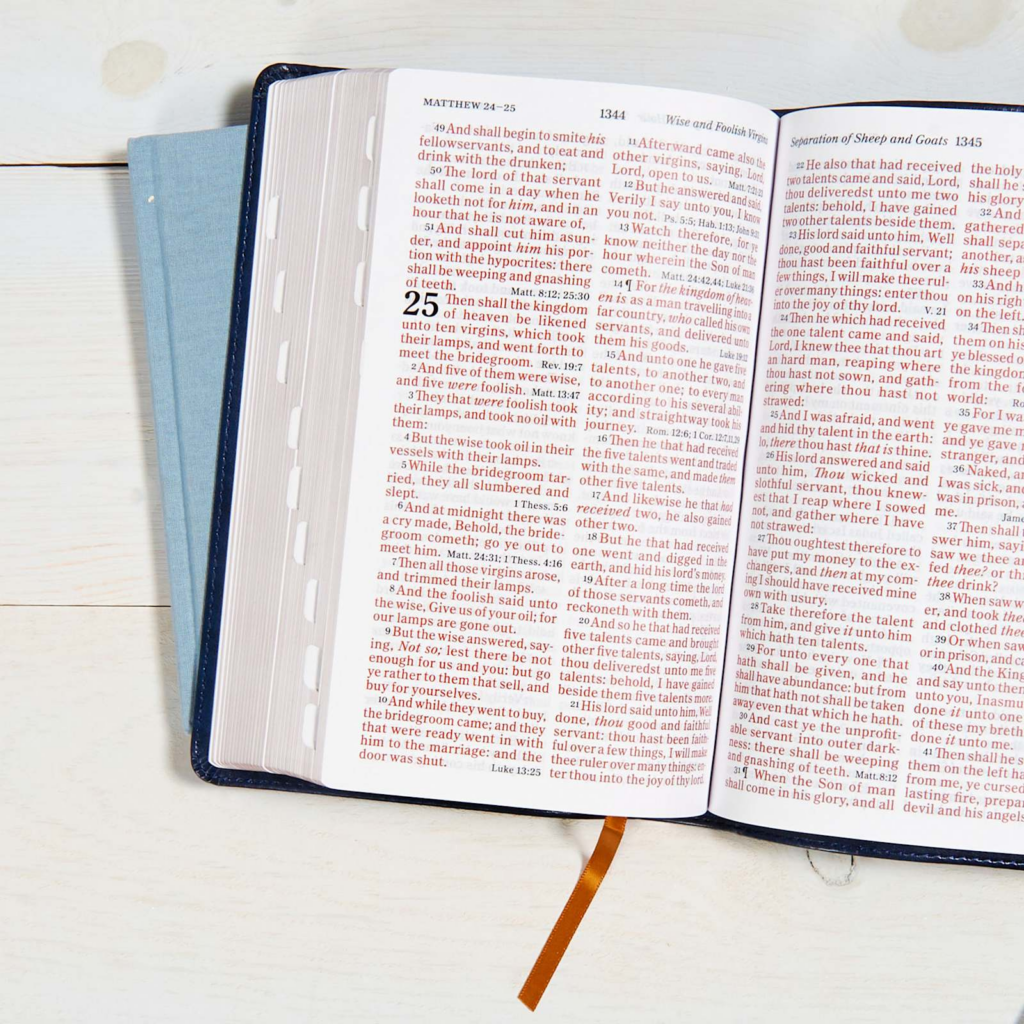 MATTHEW 24–25
1344
Wise and Foolish Virgins
49 And shall begin to smite his
fellowservants, and to eat and
drink with the drunken;
50 The lord of that servant
shall come in a day when he
looketh not for him, and in an
hour that he is not aware of,
51 And shall cut him asun-
der, and appoint him his por-
tion with the hypocrites: there
shall be weeping and gnashing
of teeth. Matt. 8:12; 25:30
25 Then shall the kingdom
of heaven be likened
unto ten virgins, which took
their lamps, and went forth to
meet the bridegroom. Rev. 19:7
2 And five of them were wise,
and five were foolish. Matt. 13:47
3 They that were foolish took
their lamps, and took no oil with
them:
4 But the wise took oil in their
vessels with their lamps.
5 While the bridegroom tar-
ried, they all slumbered and
slept. 1 Thess. 5:6
6 And at midnight there was
a cry made, Behold, the bride-
groom cometh; go ye out to
meet him. Matt. 24:31; 1 Thess. 4:16
7 Then all those virgins arose,
and trimmed their lamps.
8 And the foolish said unto
the wise, Give us of your oil; for
our lamps are gone out.
9 But the wise answered, say-
ing, Not so; lest there be not
enough for us and you: but go
ye rather to them that sell, and
buy for yourselves.
10 And while they went to buy,
the bridegroom came; and they
that were ready went in with
him to the marriage: and the
door was shut. Luke 13:25
11 Afterward came also the
other virgins, saying, Lord,
Lord, open to us. Matt. 7:21-23
12 But he answered and said,
Verily I say unto you, I know
you not. Ps. 5:5; Hab. 1:13; John 9:31
13 Watch therefore, for ye
know neither the day nor the
hour wherein the Son of man
cometh. Matt. 24:42,44; Luke 21:36
14 ¶ For the kingdom of heav-
en is as a man travelling into a
far country, who called his own
servants, and delivered unto
them his goods. Luke 19:12
15 And unto one he gave five
talents, to another two, and
to another one; to every man
according to his several abil-
ity; and straightway took his
journey. Rom. 12:6; 1 Cor. 12:7,11,29
16 Then he that had received
the five talents went and traded
with the same, and made them
other five talents.
17 And likewise he that had
received two, he also gained
other two.
18 But he that had received
one went and digged in the
earth, and hid his lord's money.
19 After a long time the lord
of those servants cometh, and
reckoneth with them.
20 And so he that had received
five talents came and brought
other five talents, saying, Lord,
thou deliveredst unto me five
talents: behold, I have gained
beside them five talents more.
21 His lord said unto him, Well
done, thou good and faithful
servant: thou hast been faith-
ful over a few things, I will make
thee ruler over many things: en-
ter thou into the joy of thy lord.
Separation of Sheep and Goats 1345
22 He also that had received
two talents came and said, Lord,
thou deliveredst unto me two
talents: behold, I have gained
two other talents beside them.
23 His lord said unto him, Well
done, good and faithful servant;
thou hast been faithful over a
few things, I will make thee rul-
er over many things: enter thou
into the joy of thy lord. V. 21
24 Then he which had received
the one talent came and said,
Lord, I knew thee that thou art
an hard man, reaping where
thou hast not sown, and gath-
ering where thou hast not
strawed:
25 And I was afraid, and went
and hid thy talent in the earth:
lo, there thou hast that is thine.
26 His lord answered and said
unto him, Thou wicked and
slothful servant, thou knew-
est that I reap where I sowed
not, and gather where I have
not strawed:
27 Thou oughtest therefore to
have put my money to the ex-
changers, and then at my com-
ing I should have received mine
own with usury.
28 Take therefore the talent
from him, and give it unto him
which hath ten talents.
29 For unto every one that
hath shall be given, and he
shall have abundance: but from
him that hath not shall be taken
away even that which he hath.
30 And cast ye the unprofit-
able servant into outer dark-
ness: there shall be weeping
and gnashing of teeth. Matt. 8:12
31 ¶ When the Son of man
shall come in his glory, and all
the holy
shall he
his glory
32 And
gathered
shall sepa
another, a
his sheep
33 And h
on his righ
on the left.
34 Then sh
them on his
ye blessed o
the kingdom
from the fo
world: Ro
35 For I wa
ye gave me m
and ye gave
stranger, and
36 Naked, an
I was sick, an
was in prison, a
me. Jame
37 Then shall
swer him, sayi
saw we thee an
fed thee? or th
thee drink?
38 When saw w
er, and took thee
and clothed thee
39 Or when saw
or in prison, and ca
40 And the King
and say unto then
unto you, Inasmu
done it unto one
of these my breth
done it unto me.
41 Then shall he s
them on the left ha
from me, ye cursed
lasting fire, prepar
devil and his angels